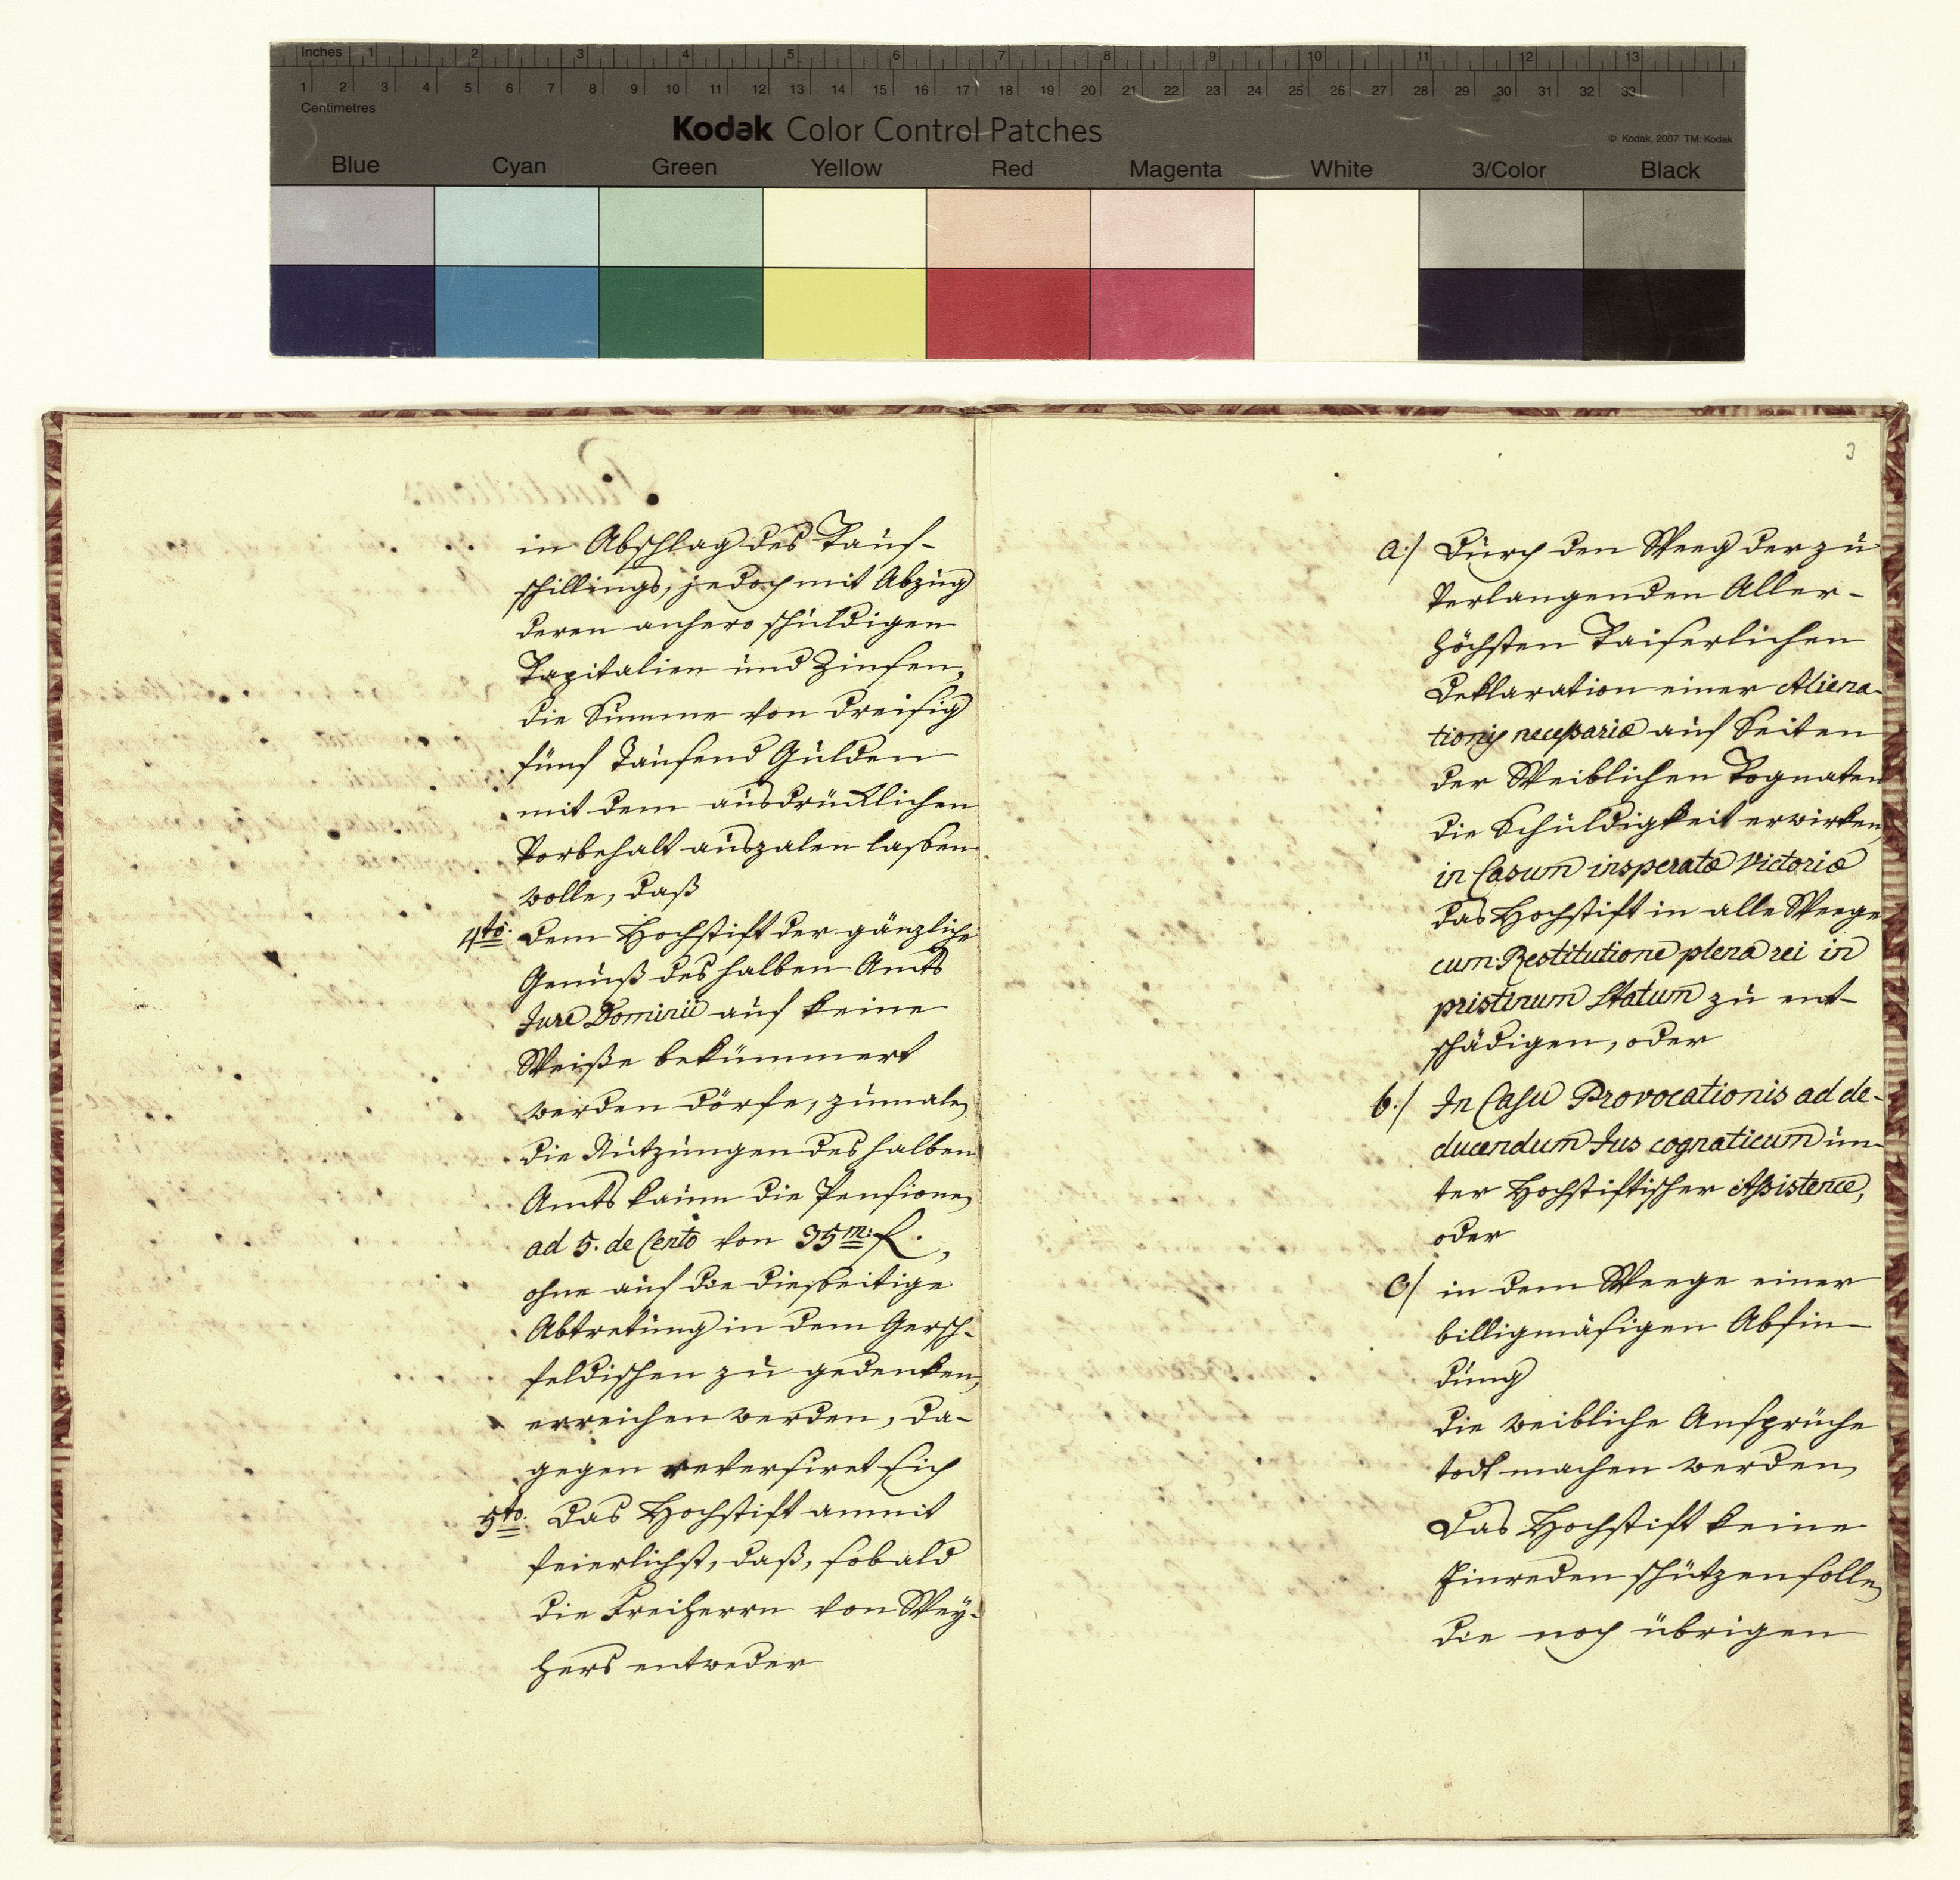 Inches 1 2 3 4 5 6 7 8 9 10 11 12 13
1 2 3 4 5 6 7 8 9 10 11 12 13 14 15 16 17 18 19 20 21 22 23 24 25 26 27 28 29 30 31 32 33
Centimetres
Kodak Color Control Patches
© Kodak, 2007 TM: Kodak
Blue Cyan Green Yellow Red Magenta White 3/Color Black
in Abschlag des Kauf-
schillings, jedoch mit Abzug
deren anhero schuldigen
Kapitalien und Zinsen,
die Summe von dreisig
fünf Tausend Gulden
mit dem ausdrücklichen
Vorbehalt auszalen lassen
wolle, daß
4to. dem Hochstift der gänzliche
Genuß des halben Amts
Jure Dominii auf keine
Weiße bekümmert
werden dörfe, zumalen
die Nutzungen des halben
Amts kaum die Pensionen
ad 5. de Cento von 35m: f.,
ohne auf die diesseitige
Abtretung in dem Gersch-
feldischen zu gedenken,
erreichen werden, da-
gegen reversiret sich
5to. das Hochstift anmit
feierlichst, daß, sobald
die Freiherrn von Wey-
hers entweder
3
a:/ Durch den Weeg der zu
Verlangenden Aller-
höchsten Kaiserlichen
Deklaration einer Aliena-
tionis necessariæ auf Seiten
der Weiblichen Kognaten
die Schuldigkeit erwirken,
in Casum insperatæ Victoriæ
das Hochstift in alle Weege
cum Restitutione plena rei in
pristinum Statum zu ent-
schädigen, oder
b:/ In Casu Provocationis ad de-
ducendum Jus cognaticum un-
ter Hochstiftischer Assistence,
oder
c/ in dem Weege einer
billigmäsigen Abfin-
dung
die weibliche Ansprüche
todt machen werden,
das Hochstift keine
Einreden schützen solle,
die noch übrigen